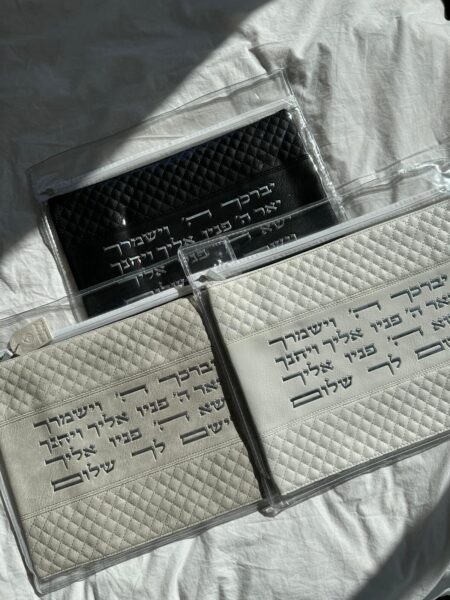 יברכך ה' וישמרך
יאר ה' פניו אליך ויחנך
ישא ה' פניו אליך
וישם
יברכך ה' וישמרך
יאר ה' פניו אליך ויחנך
ישא ה' פניו אליך
וישם לך שלום
יברכך ה' וישמרך
יאר ה' פניו אליך ויחנך
ה' פניו אליך
לך שלום